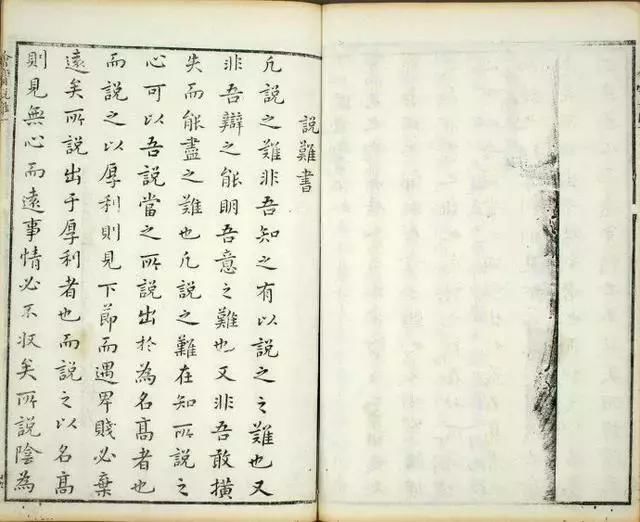 説難書
凡説之難非吾知之有以説之之難也又
非吾辯之能明吾意之難也又非吾敢横
失而能盡之難也凡説之難在知所説之
心可以吾説當之所説出於為名髙者也
而説之以厚利則見下節而遇卑賤必棄
遠矣所説出于厚利者也而説之以名髙
則見無心而遠事情必不収矣所説陰為